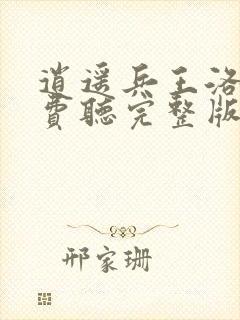 逍遥兵王洛
費聽完整版
邢家珊